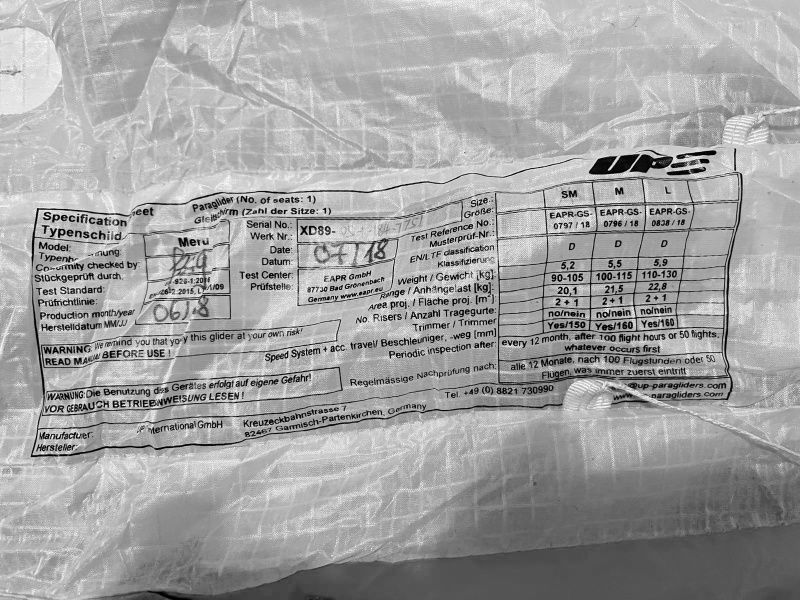 UP
Specification sheet Paraglider (No. of seats: 1)
Typenschild Gleitschirm (Zahl der Sitze: 1)
Model: Meru
Conformity checked by:
Stückgeprüft durch:
Test Standard: 926-1:2015
Prüfrichtlinie: 926-2:2015, 91/09
Production month/year 06/18
Herstelldatum MM/JJ
Serial No.: XD89-
Werk Nr.:
Date: 07/18
Datum:
Test Center: EAPR GmbH
Prüfstelle: 87730 Bad Grönenbach
Germany www.eapr.eu
Size.: SM M L
Größe:
Test Reference No.: EAPR-GS-0797 / 18 EAPR-GS-0796 / 18 EAPR-GS-0838 / 18
Musterprüf-Nr.:
EN/LTF classification D D D
Klassifizierung
Weight / Gewicht [kg]: 5,2 5,5 5,9
Range / Anhängelast [kg]: 90-105 100-115 110-130
Area proj. / Fläche proj. [m²] 20,1 21,5 22,8
No. Risers / Anzahl Tragegurte: 2 + 1 2 + 1 2 + 1
Trimmer / Trimmer no/nein no/nein no/nein
Speed System + acc. travel/ Beschleuniger, -weg [mm] Yes/150 Yes/160 Yes/160
Periodic inspection after: every 12 month, after 100 flight hours or 50 flights,
whatever occurs first
Regelmässige Nachprüfung nach: alle 12 Monate, nach 100 Flugstunden oder 50
Flügen, was immer zuerst eintrifft
WARNING: We remind you that you fly this glider at your own risk!
READ MANUAL BEFORE USE !
WARNUNG: Die Benutzung des Gerätes erfolgt auf eigene Gefahr!
VOR GEBRAUCH BETRIEBNWEISUNG LESEN !
Manufactuer: International GmbH Kreuzeckbahnstrasse 7 Tel. +49 (0) 8821 730990 @up-paragliders.com
Hersteller: 82467 Garmisch-Partenkirchen, Germany www.up-paragliders.com